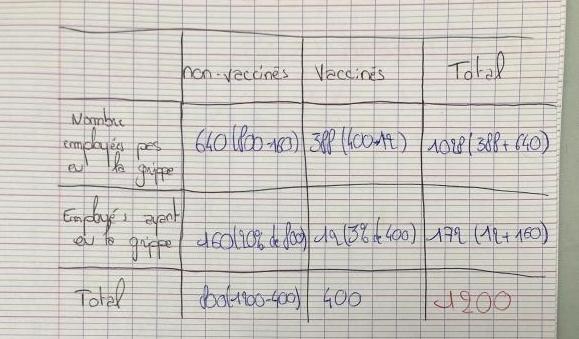 non-vaccinés Vaccinés Total
Nombre
employées pas
eu la grippe
640 (800-160) 388 (400-12) 1028 (388+640)
Employés ayant
eu la grippe
160 (20% de 800) 12 (3% de 400) 172 (12+160)
Total 800 (1200-400) 400 1200